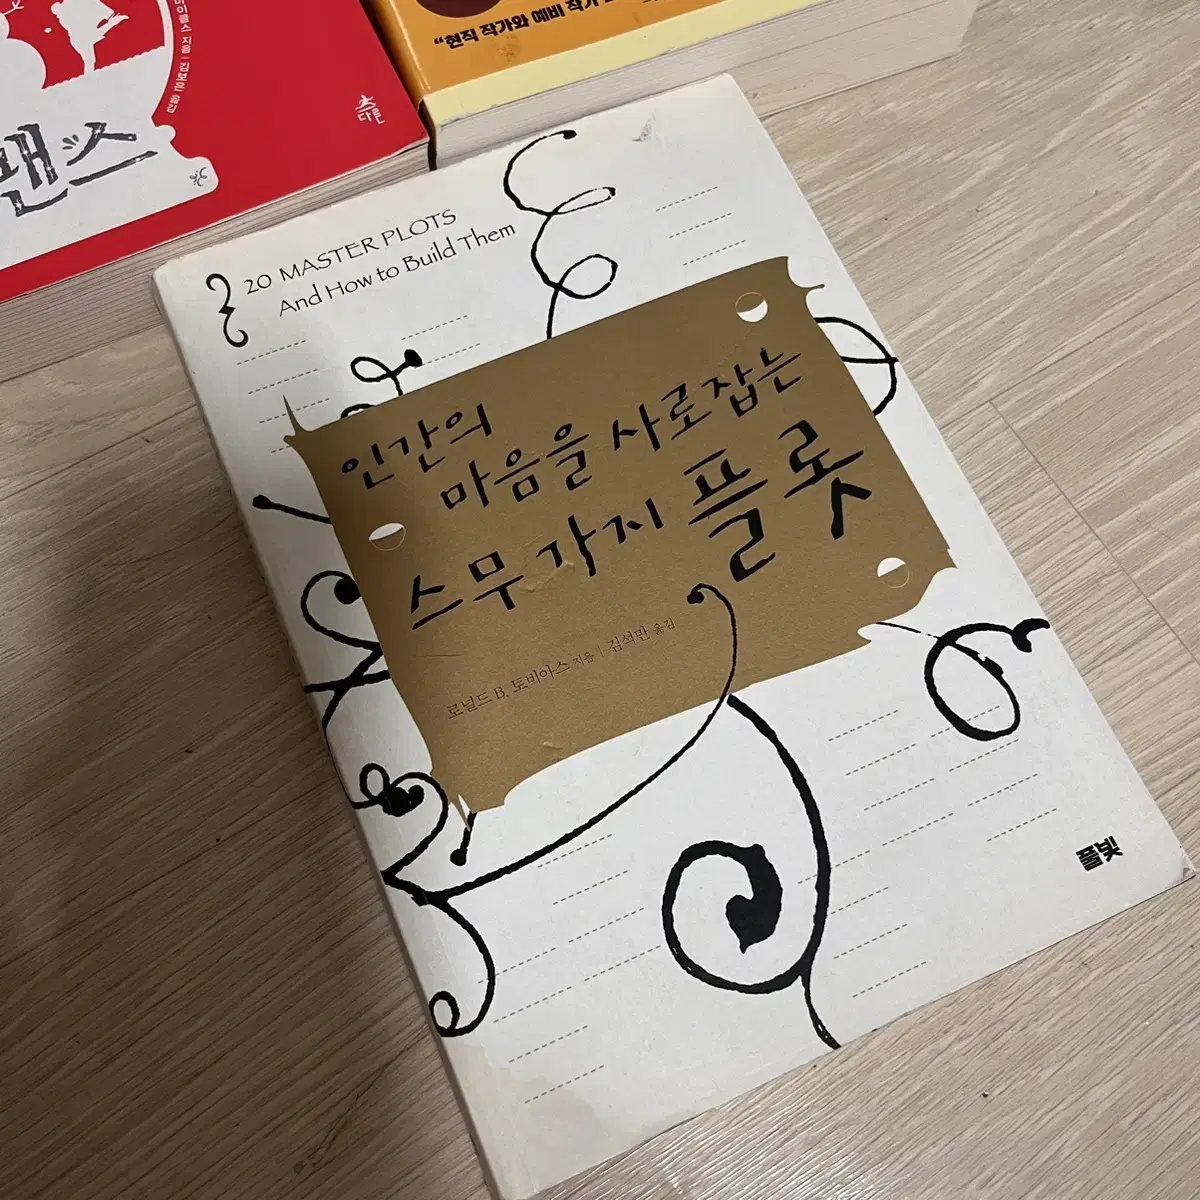 마이클스 지음 | 김보은 옮김
다른
팬스
"현직 작가와 예비 작가
20 MASTER PLOTS
And How to Build Them
인간의
마음을 사로잡는
스무 가지 플롯
로널드 B. 토비아스 지음 | 김석만 옮김
풀빛